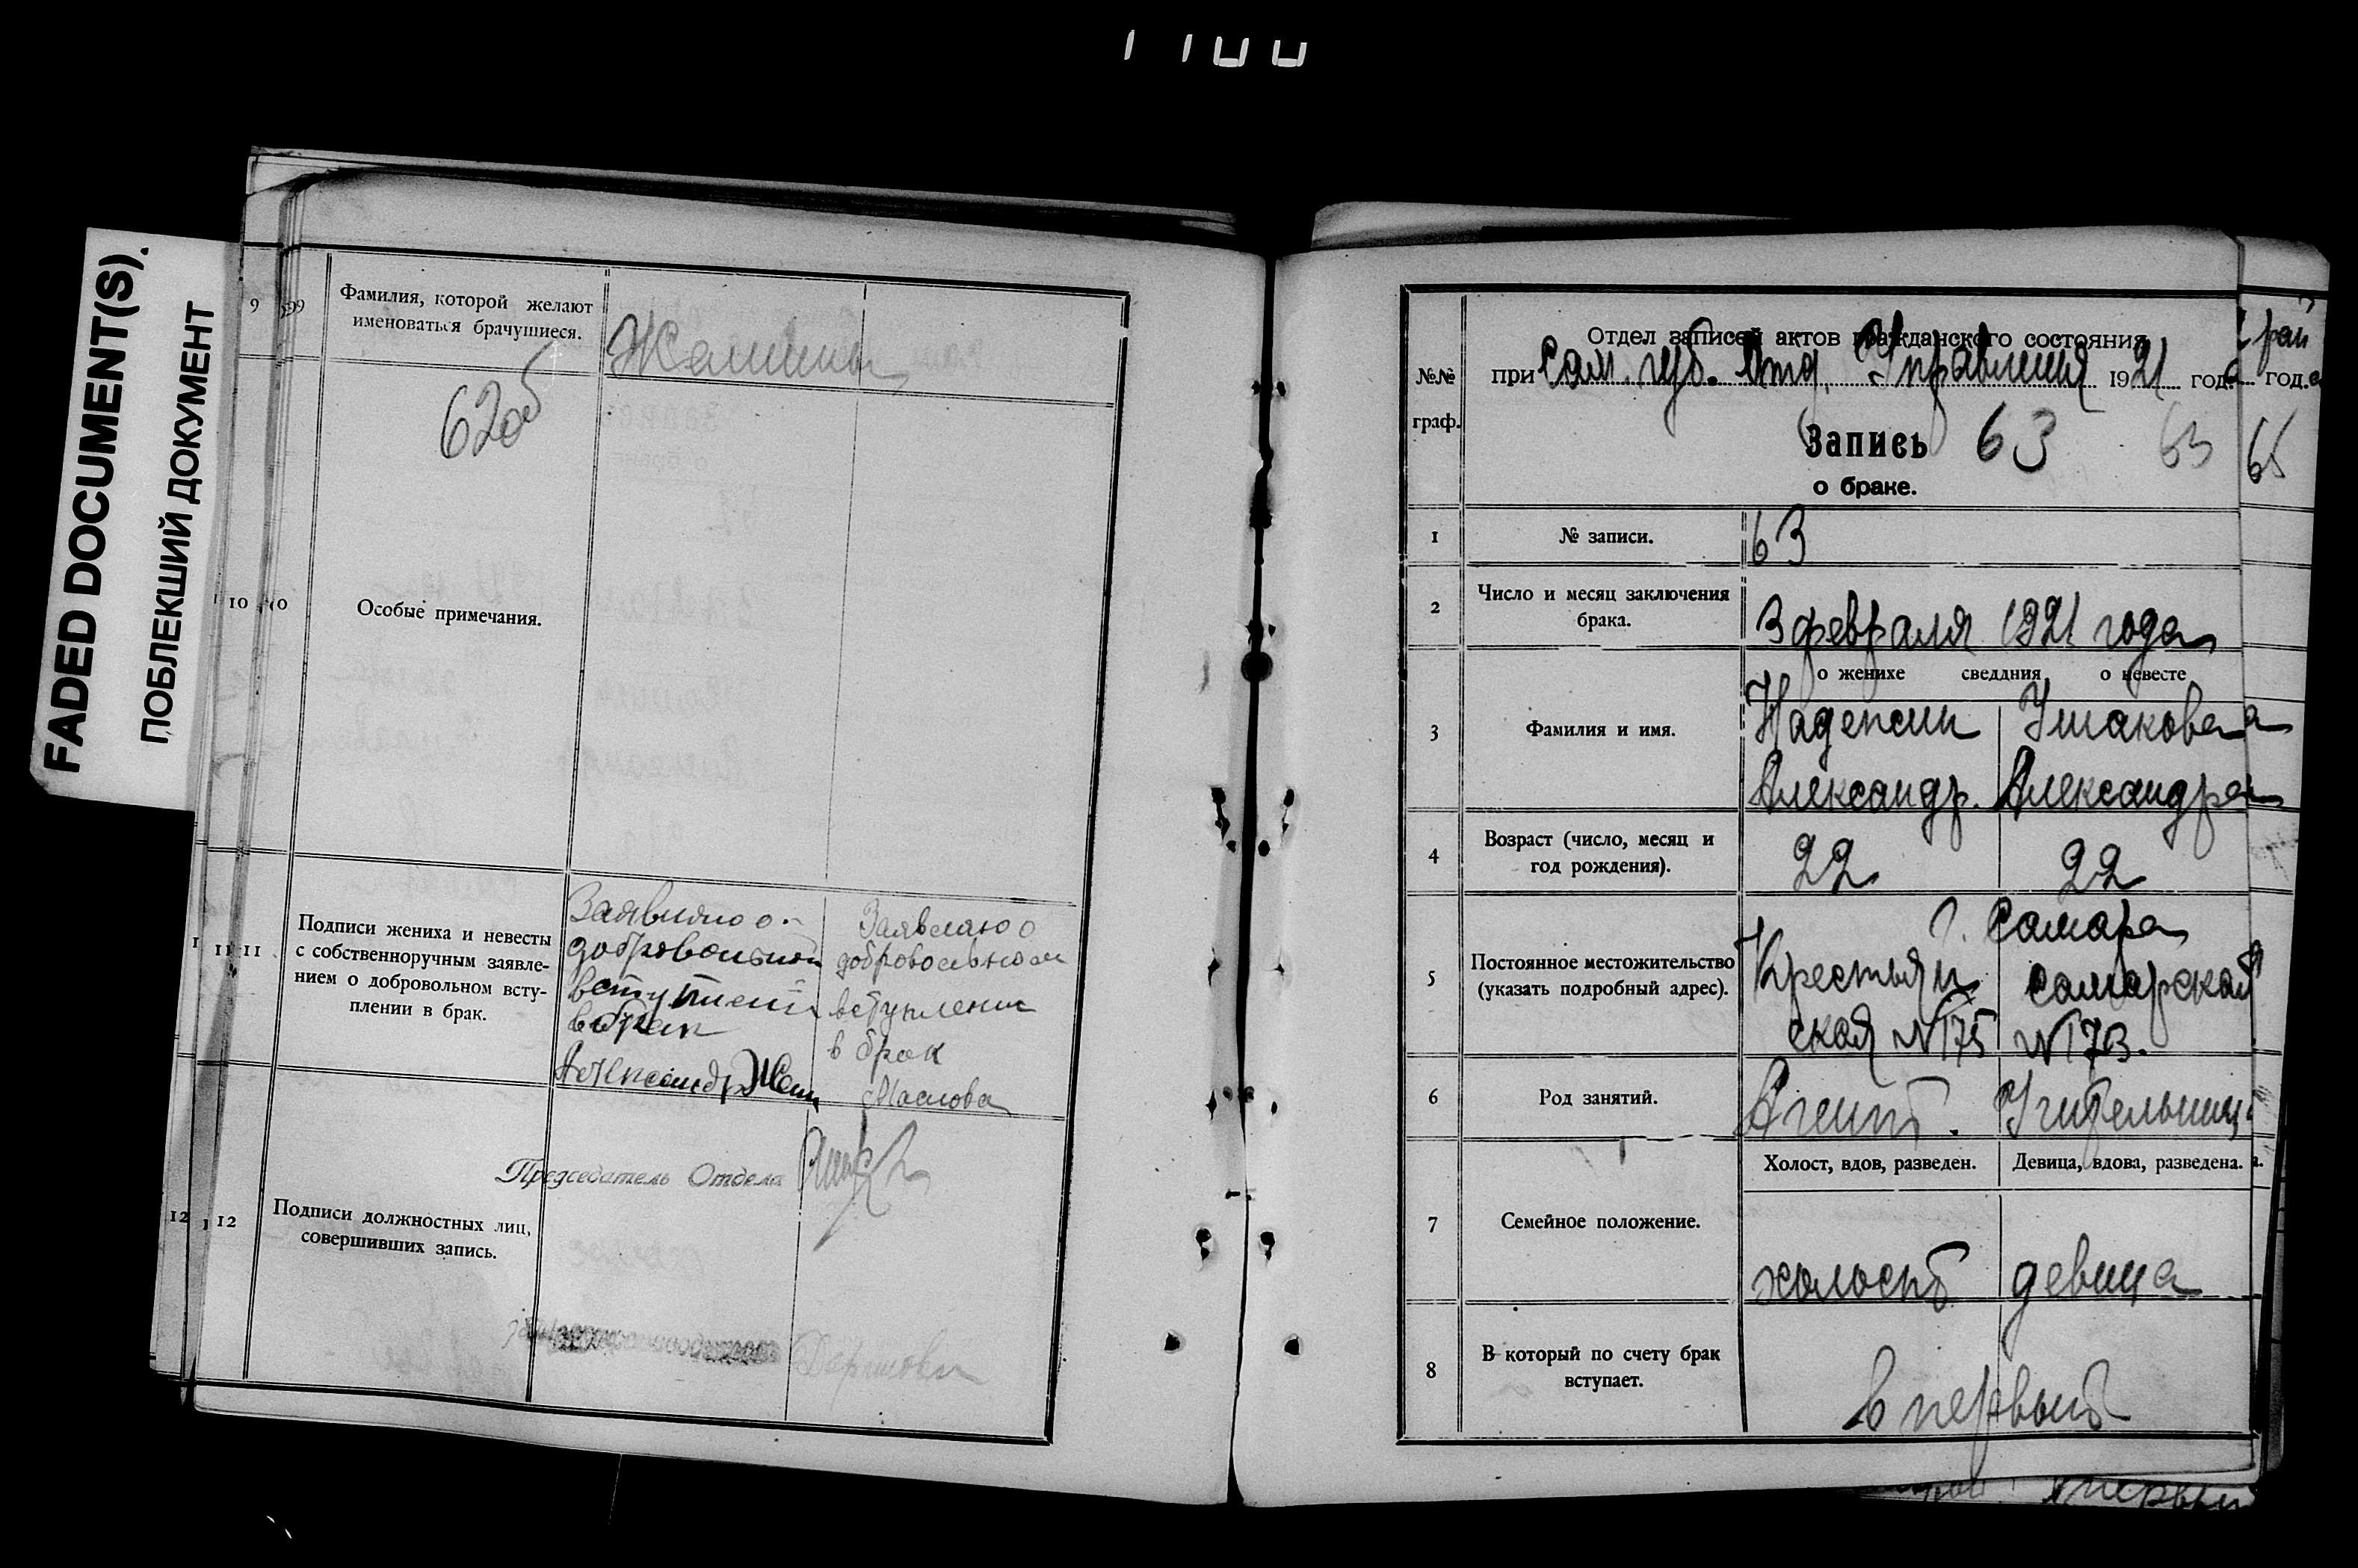 FADED DOCUMENT(S).
ПОБЛЕКШИЙ ДОКУМЕНТ
9 9
Фамилия, которой желают
именоваться брачущиеся.
62об
10
Особые примечания.
11 11
Подписи жениха и невесты
с собственноручным заявле-
нием о добровольном всту-
плении в брак.
Заявляю о
добровольном
вступлении
в брак
Александр
Заявляю о
добровольном
вступлении
в брак
Маслова
12 12
Подписи должностных лиц,
совершивших запись.
Председатель Отдела
№№
граф.
Отдел записей актов гражданского состояния
при Сам. губ. Отд. Управления 1921 года
Запись 63 63
о браке.
65
год.
1
№ записи.
63
2
Число и месяц заключения
брака.
3 февраля 1921 года
о женихе сведдния о невесте
3
Фамилия и имя.
Надеждин Ушакова
Александр. Александра
4
Возраст (число, месяц и
год рождения).
22 22
5
Постоянное местожительство
(указать подробный адрес).
г. Самара
Крестьян
ская №175
самарская
№173.
6
Род занятий.
Агент. Учительниц
7
Семейное положение.
Холост, вдов, разведен. Девица, вдова, разведена.
холост девица
8
В который по счету брак
вступает.
в первый